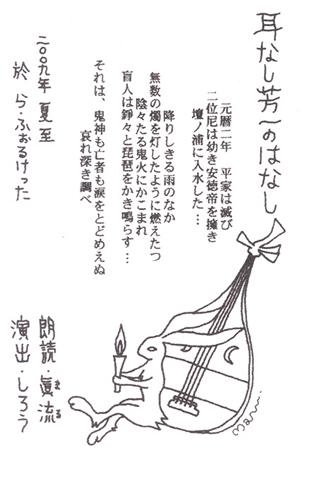 耳なし芳一のはなし
元暦二年　平家は滅び
二位尼は幼き安徳帝を擁き
壇ノ浦に入水した…
降りしきる雨のなか
無数の燭を灯したように燃えたつ
陰々たる鬼火にかこまれ
盲人は錚々と琵琶をかき鳴らす…
それは、鬼神も亡者も涙をとどめえぬ
哀れ深き調べ
二〇〇九年 夏至
於 ら・ふぉるけった
朗読・眞流
える
演出・しろう